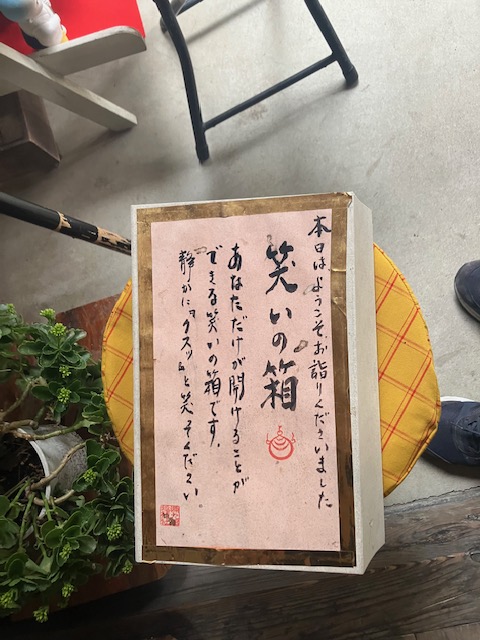 本日はようこそお詣りくださいました
笑いの箱
あなただけが開けることが
できる笑いの箱です。
静かに『クスッ』と笑そください。